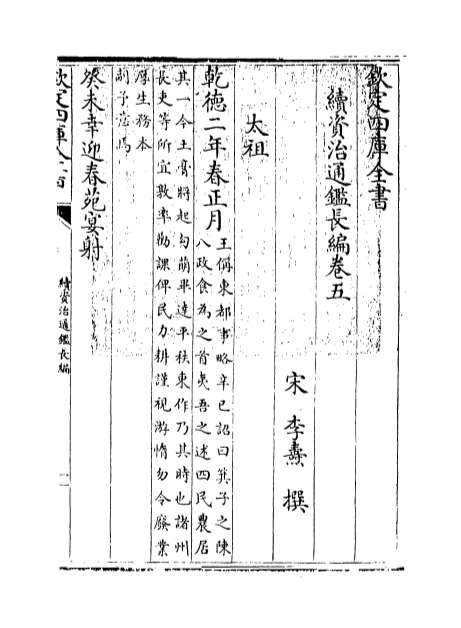 欽定四庫全書
續資治通鑑長編卷五
宋 李燾 撰
太祖
乾德二年春正月
王偁東都事略辛巳詔曰箕子之陳
八政食為之首夷吾之述四民農居
其一今土膏將起勾萌畢達平秩東作乃其時也諸州
長吏等所宜敦率勸課俾民力耕謹視游惰勿令廢業
厚生務本
副予意焉
癸未幸迎春苑宴射
欽定四庫全書
續資治通鑑長編
一